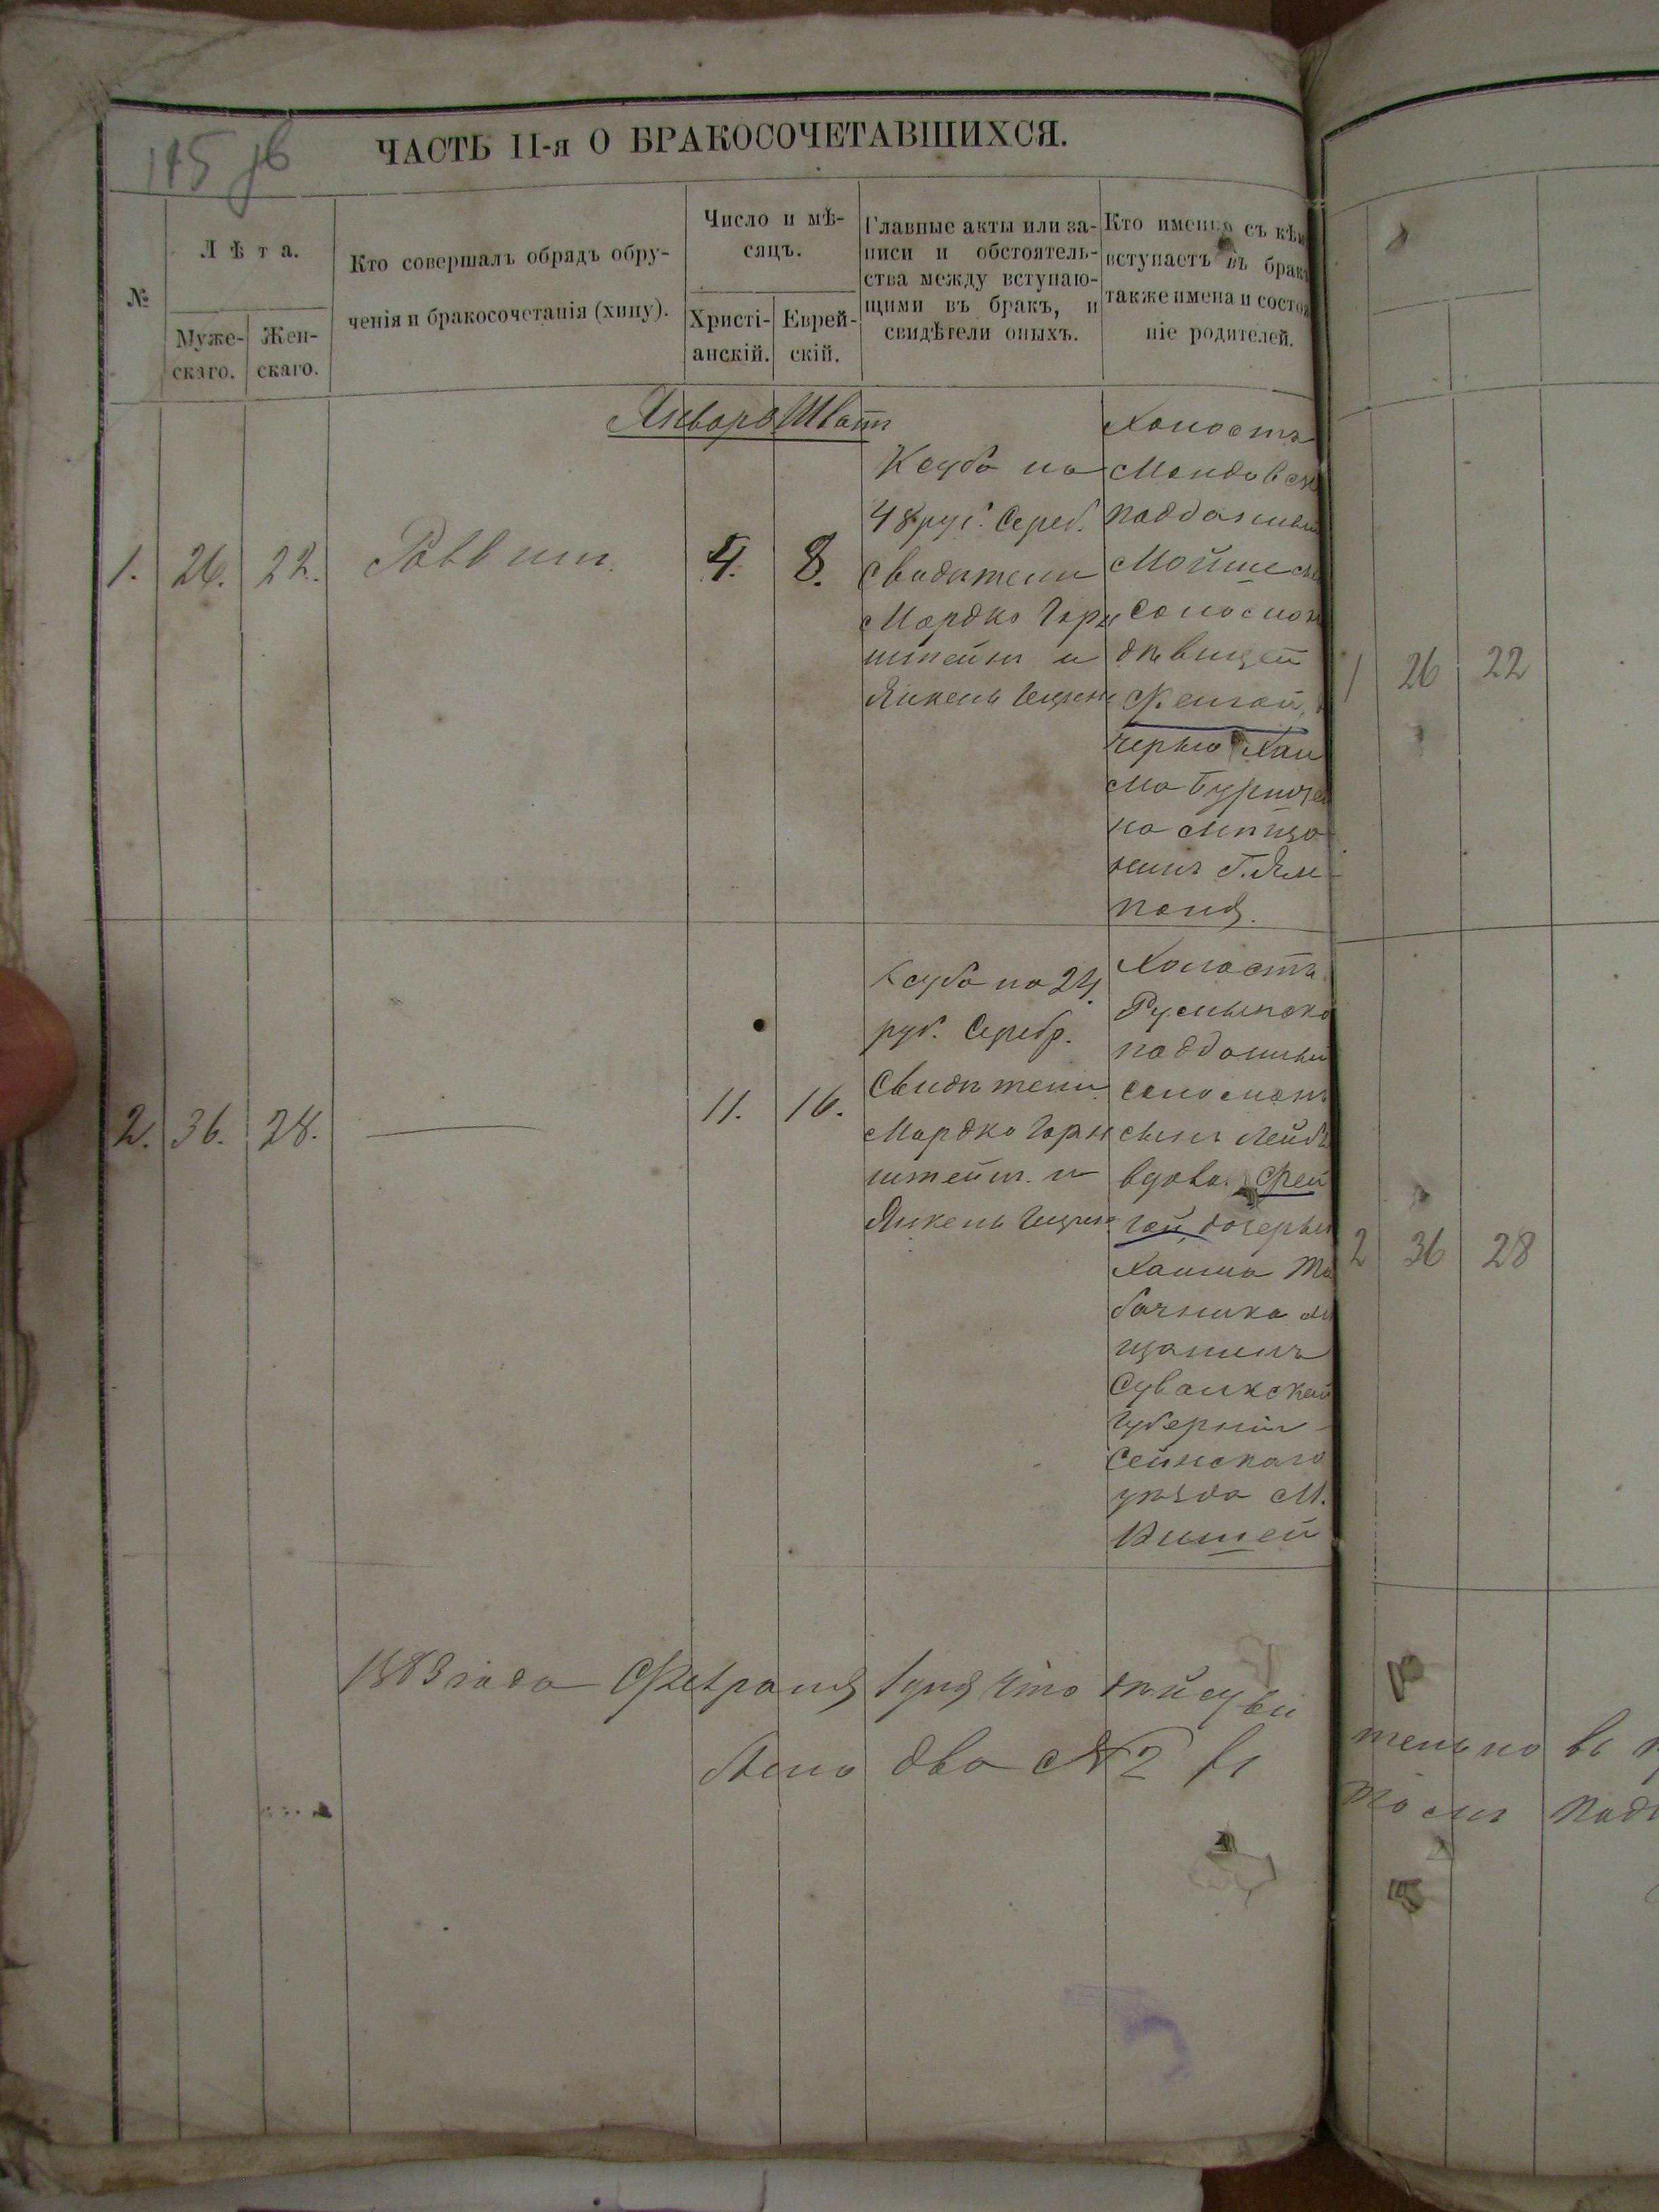 145 об
ЧАСТЬ II-я О БРАКОСОЧЕТАВШИХСЯ.
№
Лѣта.
Муже-
скаго.
Жен-
скаго.
Кто совершалъ обрядъ обру-
ченія и бракосочетанія (хипу).
Число и мѣ-
сяцъ.
Христі-
анскій.
Еврей-
скій.
Главные акты или за-
писи и обстоятель-
ства между вступаю-
щими въ бракъ, и
свидѣтели оныхъ.
Кто именно съ кѣм
вступаетъ въ бракъ
также имена и состоя
ніе родителей.
Январь Шватъ
1. 26. 22. Раввин. 4. 8.
Ксуба на
48 руб. Сереб.
Свидѣтели
Мордко Горн
штейнъ и
Янкель
Холостъ
Молдавск
подданный
Мойше
Соломон
дѣвицей
Фейгой,
черью Хаи
ма
на мѣща
нинъ Г. Ям
поля.
2. 36. 28. — 11. 16.
Ксуба на 24
руб. Серебр.
Свидѣтели
Мордко Горн
штейн. и
Янкель
Холостъ
Румынско
подданный
Соломонъ
сынъ Лейб
вдова. Фей
гой, дочерью
Хаима Та
бачника мѣ
щанинъ
Сувалкской
Губерніи
Сейнскаго
уѣзда М.
1883 года Февраля 1 дня Что дѣйстви
два № 2
1 26 22
2 36 28
тельно въ
томъ подп